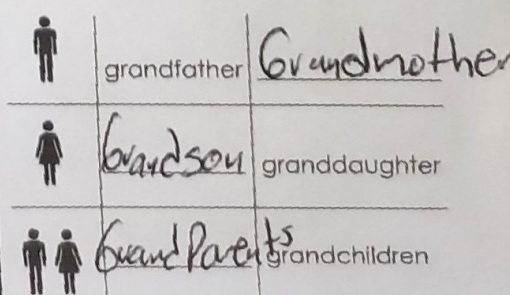 grandfather Grandmother
Grandson granddaughter
GrandParents grandchildren